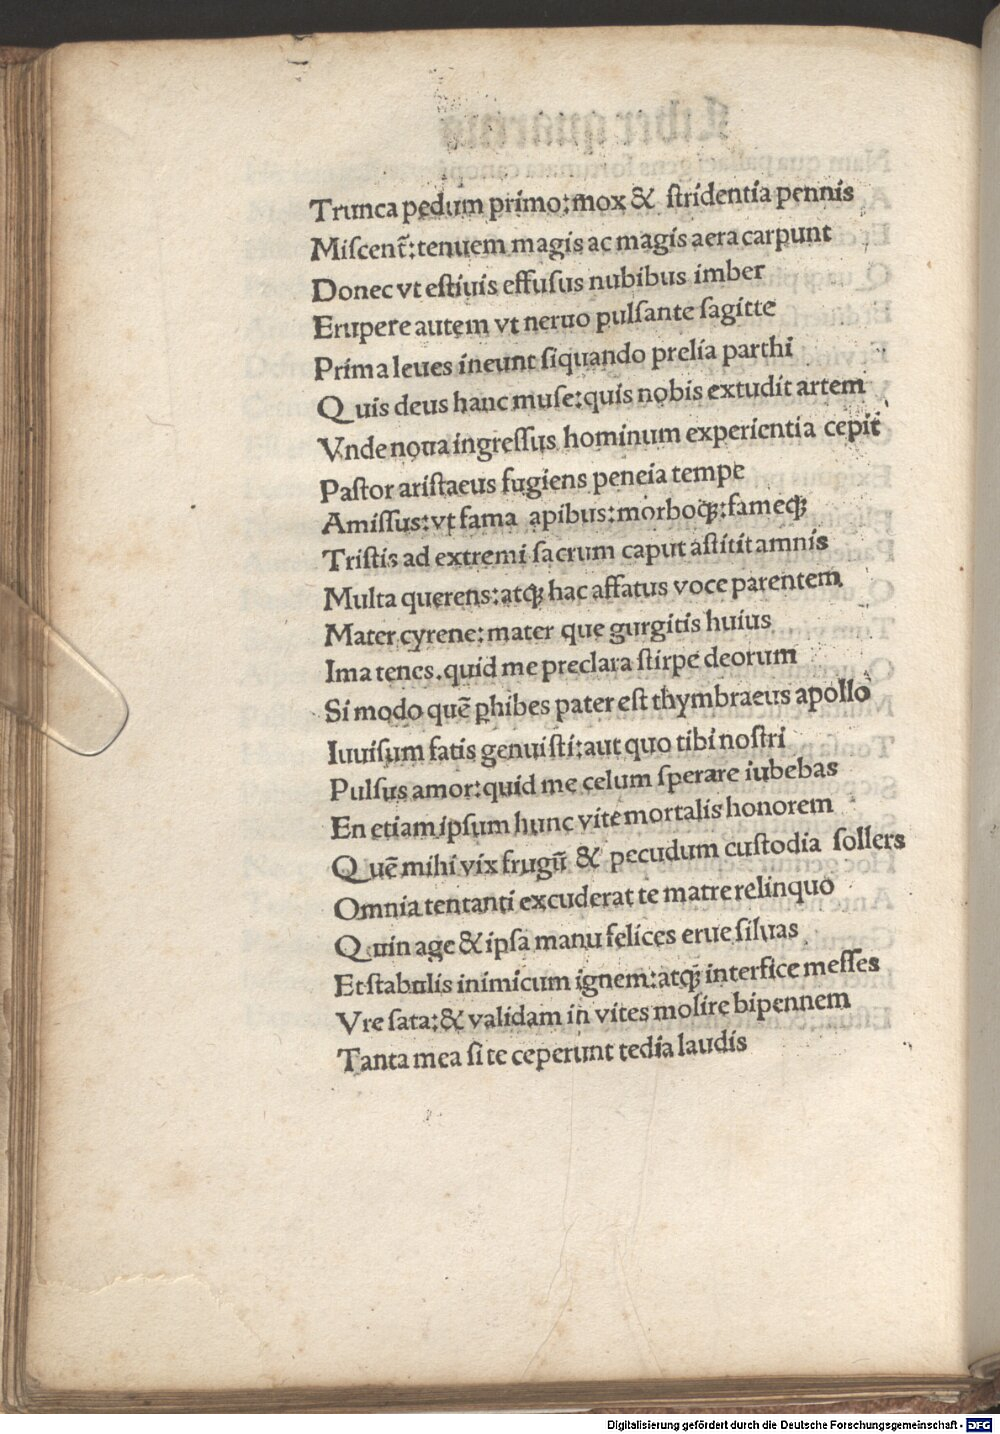 Trunca pedum primo:mox & ſtridentia pennis
Miſcent᷑:tenuem magis ac magis aera carpunt
Donec vt eſtiuis effuſus nubibus imber
Erupere autem vt neruo pulſante ſagitte
Prima leues ineunt ſiquando prelia parthi
Quis deus hanc muſe:quis nobis extudit artem
Vnde noua ingreſſus hominum experientia cepit
Paſtor ariſtaeus fugiens peneia tempe
Amiſſus:vt fama apibus:morboqꝫ:fameqꝫ
Triſtis ad extremi ſacrum caput aſtitit amnis
Multa querens:atqꝫ hac affatus voce parentem
Mater cyrene:mater que gurgitis huius
Ima tenes.quid me preclara ſtirpe deorum
Si modo quē ꝑhibes pater eſt thymbraeus apollo
Iuuiſum fatis genuiſti:aut quo tibi noſtri
Pulſus amor:quid me celum ſperare iubebas
En etiam ipſum hunc vite mortalis honorem
Quē mihi vix frugū & pecudum cuſtodia ſollers
Omnia tentanti excuderat te matre relinquo
Quin age & ipſa manu felices erue ſiluas
Et ſtabulis inimicum ignem:atqꝫ interfice meſſes
Vre ſata:& validam in vites molire bipennem
Tanta mea ſi te ceperunt tedia laudis
Digitalisierung gefördert durch die Deutsche Forschungsgemeinschaft - DFG